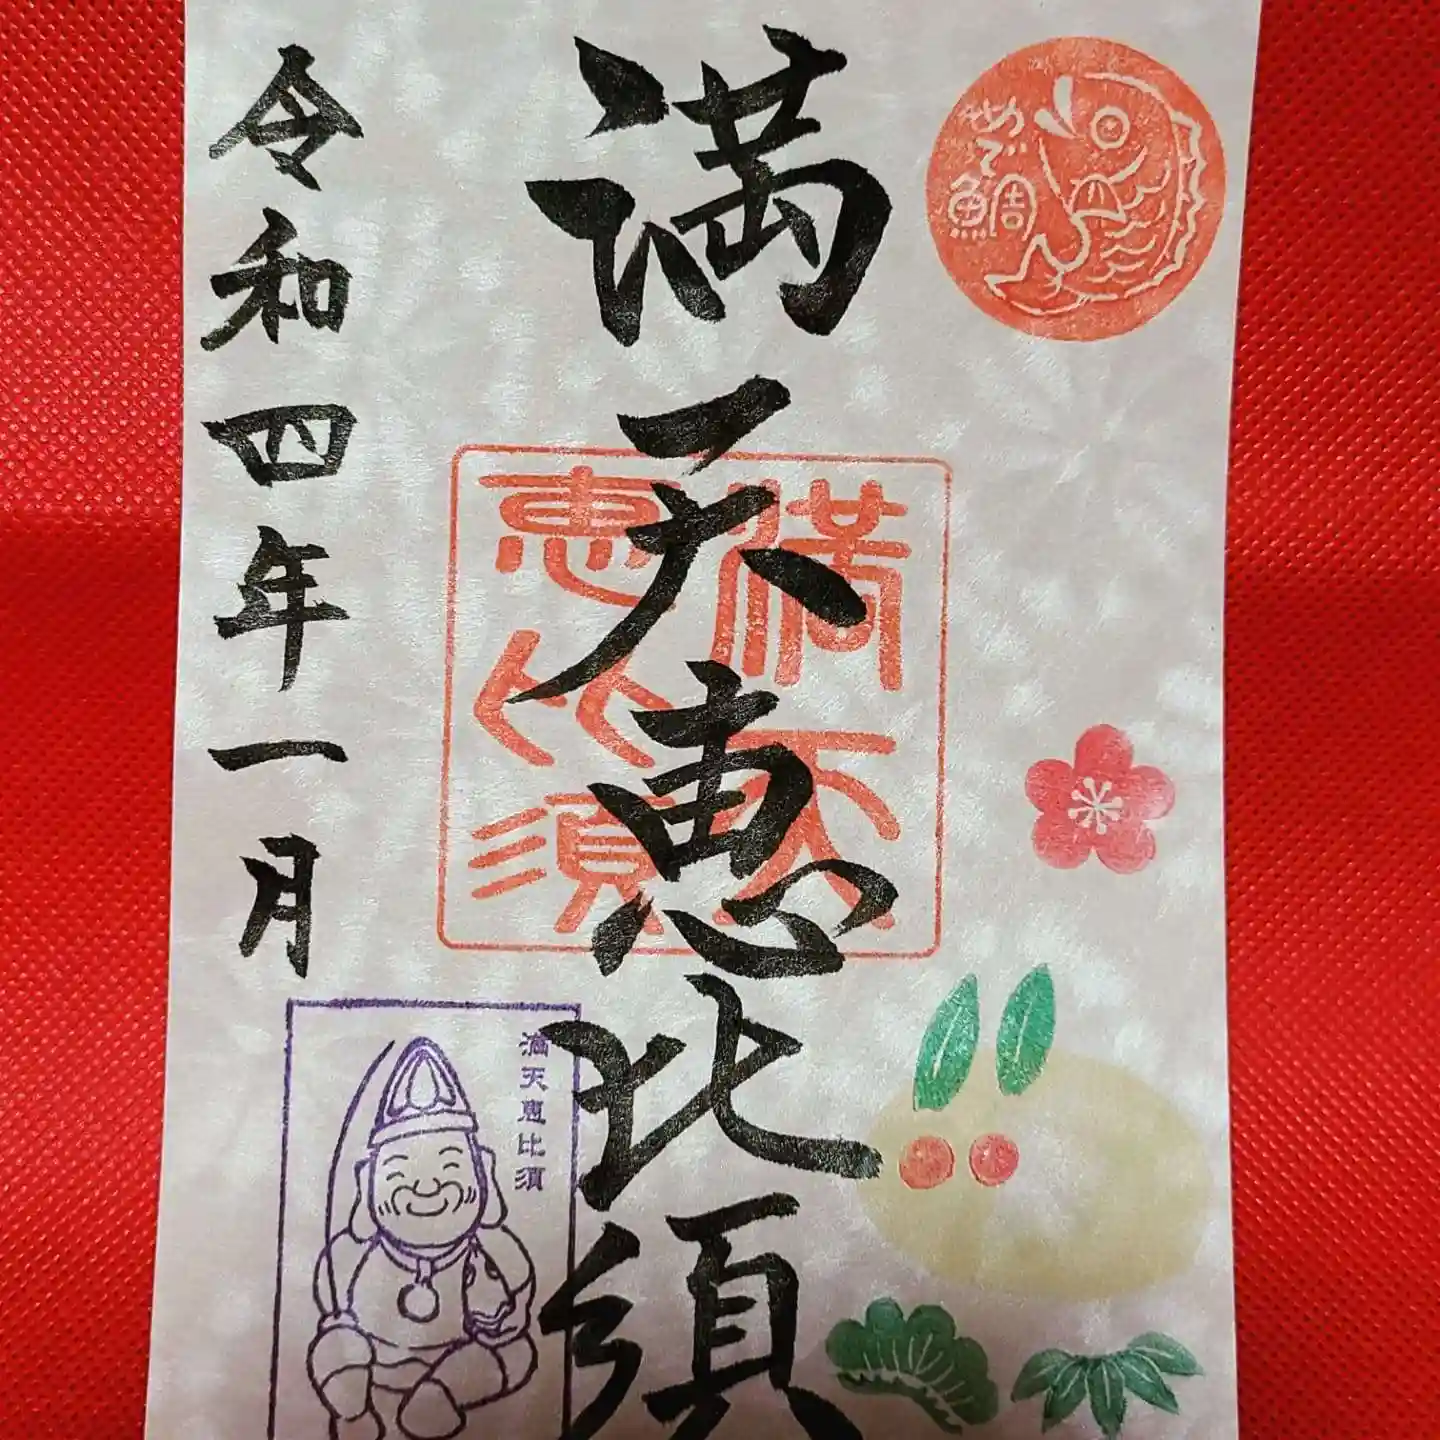 めで鯛
満天恵比須
満天恵比須
満天恵比須
令和四年一月